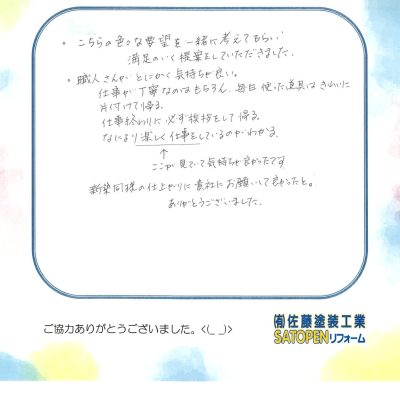 ・こちらの色々な要望を一緒に考えてもらい
満足のいく提案をしていただきました。
・職人さんがとにかく気持ちが良い。
仕事が丁寧なのはもちろん、毎日使った道具はきれいに
片付けて帰る。
仕事終わりに必ず挨拶をして帰る。
なにより楽しく仕事をしているのがわかる。
↑
ここが見ていて気持ちが良かったです
新築同様の仕上がりに貴社にお願いして良かったと。
ありがとうございました。
ご協力ありがとうございました。<(_ _)>
㈲佐藤塗装工業
SATOPENリフォーム